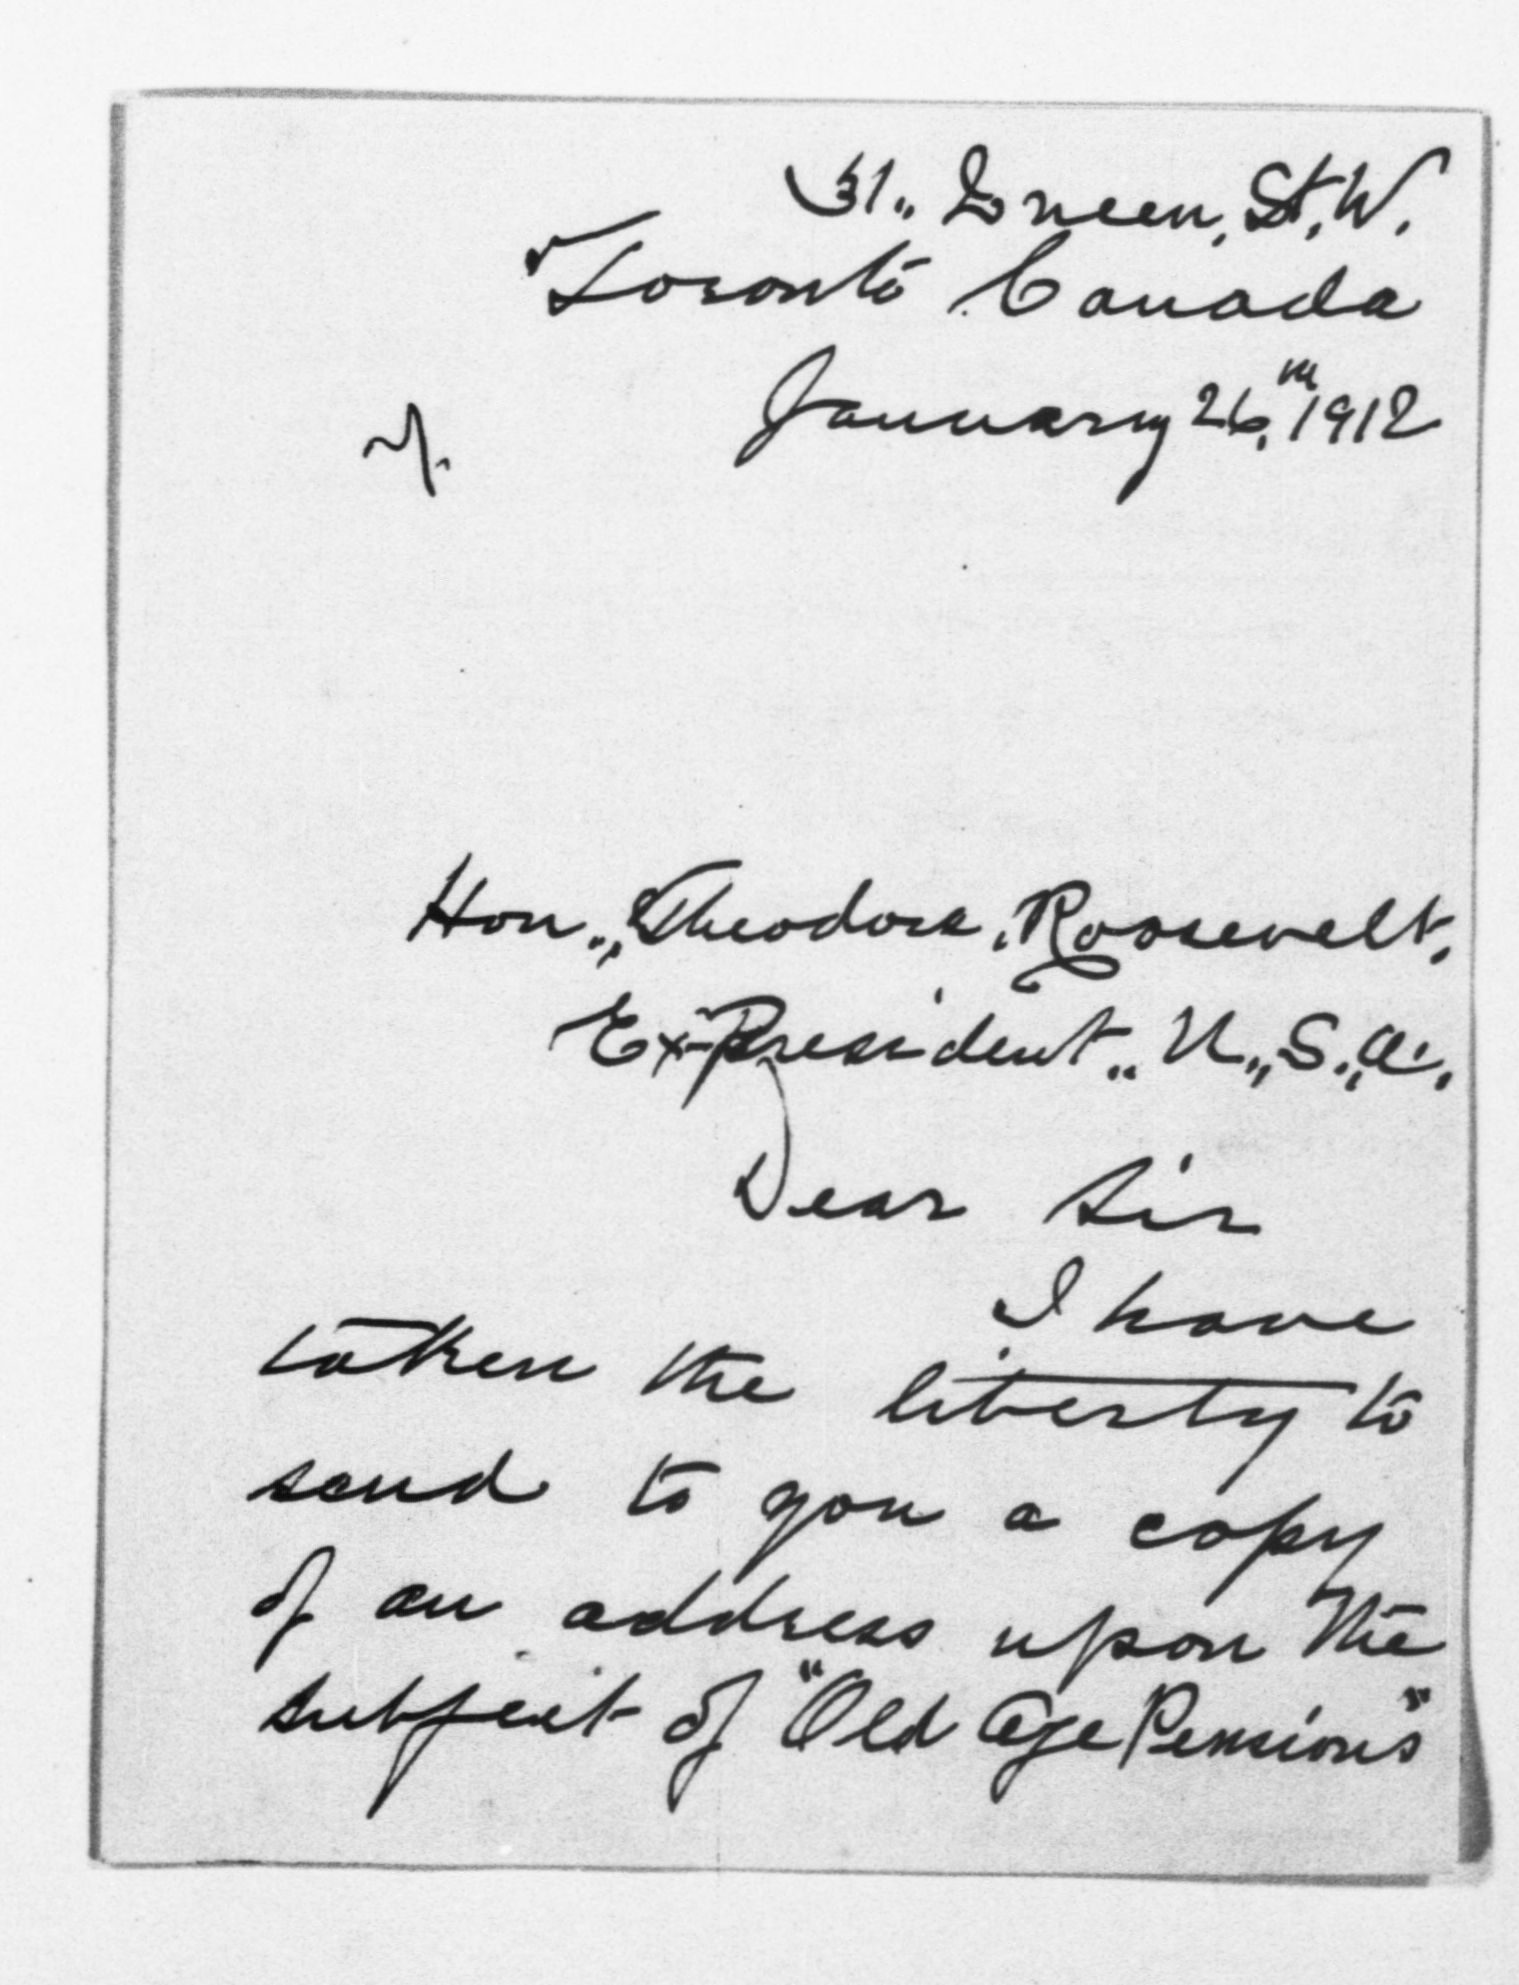 31., Queen, St., W.
Toronto Canada
January 26th, 1912
Hon., Theodore, Roosevelt,
Ex-President., U., S., A.,
Dear Sir
I have
taken the liberty to
send to you a copy
of an address upon the
subject of "Old Age Pensions"